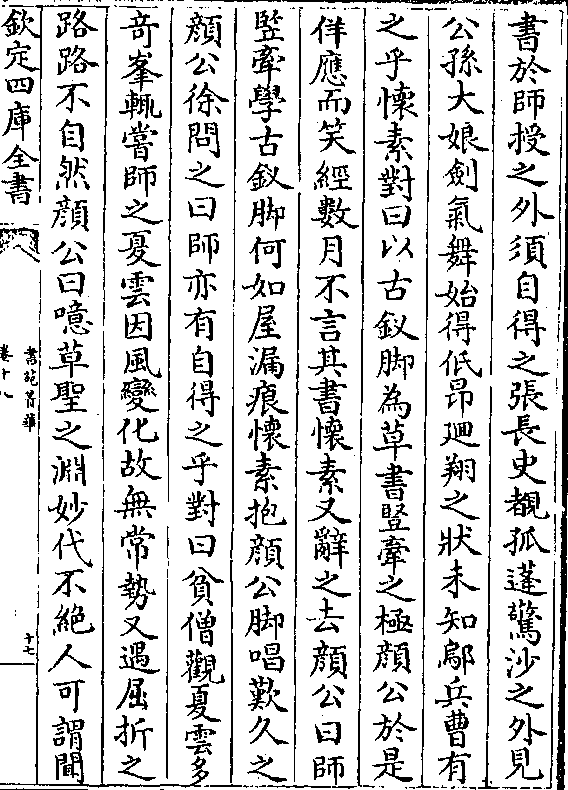 書於師授之外須自得之張長史覩孤蓬驚沙之外見
公孫大娘劍氣舞始得低昂廻翔之狀未知鄔兵曹有
之乎懷素對曰以古釵脚為草書竪牽之極顔公於是
佯應而笑經數月不言其書懷素又辭之去顔公曰師
竪牽學古釵脚何如屋漏痕懷素抱顔公脚唱歎久之
顔公徐問之曰師亦有自得之乎對曰貧僧觀夏雲多
奇峯輒嘗師之夏雲因風變化故無常勢又遇屈折之
路路不自然顔公曰噫草聖之淵妙代不絶人可謂聞
欽定四庫全書
書苑菁華
卷十八
十七